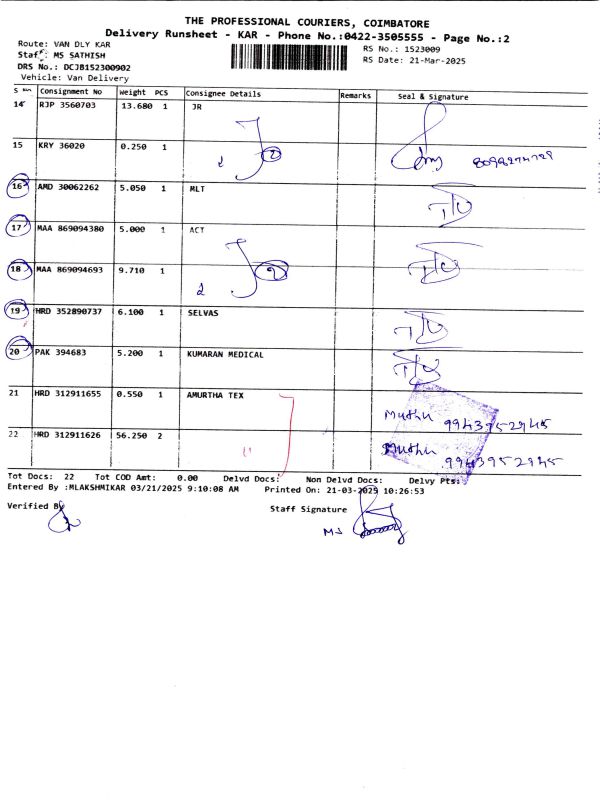 THE PROFESSIONAL COURIERS, COIMBATORE
Delivery Runsheet - KAR - Phone No.:0422-3505555 - Page No.:2
Route: VAN DLY KAR
RS No.: 1523009
Staff: MS SATHISH
RS Date: 21-Mar-2025
DRS No.: DCJB152300902
Vehicle: Van Delivery
Consignment No Weight PCS Consignee Details Remarks Seal & Signature
14 RJP 3560703 13.680 1 JR
15 KRY 36020 0.250 1 2 2 8098274729
16 AMD 30062262 5.050 1 MLT
17 MAA 869094380 5.000 1 ACT
18 MAA 869094693 9.710 1 2 2
19 HRD 352890737 6.100 1 SELVAS
20 PAK 394683 5.200 1 KUMARAN MEDICAL
21 HRD 312911655 0.550 1 AMURTHA TEX Muthu 9943952945
22 HRD 312911626 56.250 2 Muthu 9943952945
Tot Docs: 22 Tot COD Amt: 0.00 Delvd Docs: Non Delvd Docs: Delvy Pts:
Entered By :MLAKSHMIKAR 03/21/2025 9:10:08 AM Printed On: 21-03-2025 10:26:53
Verified By Staff Signature
MS